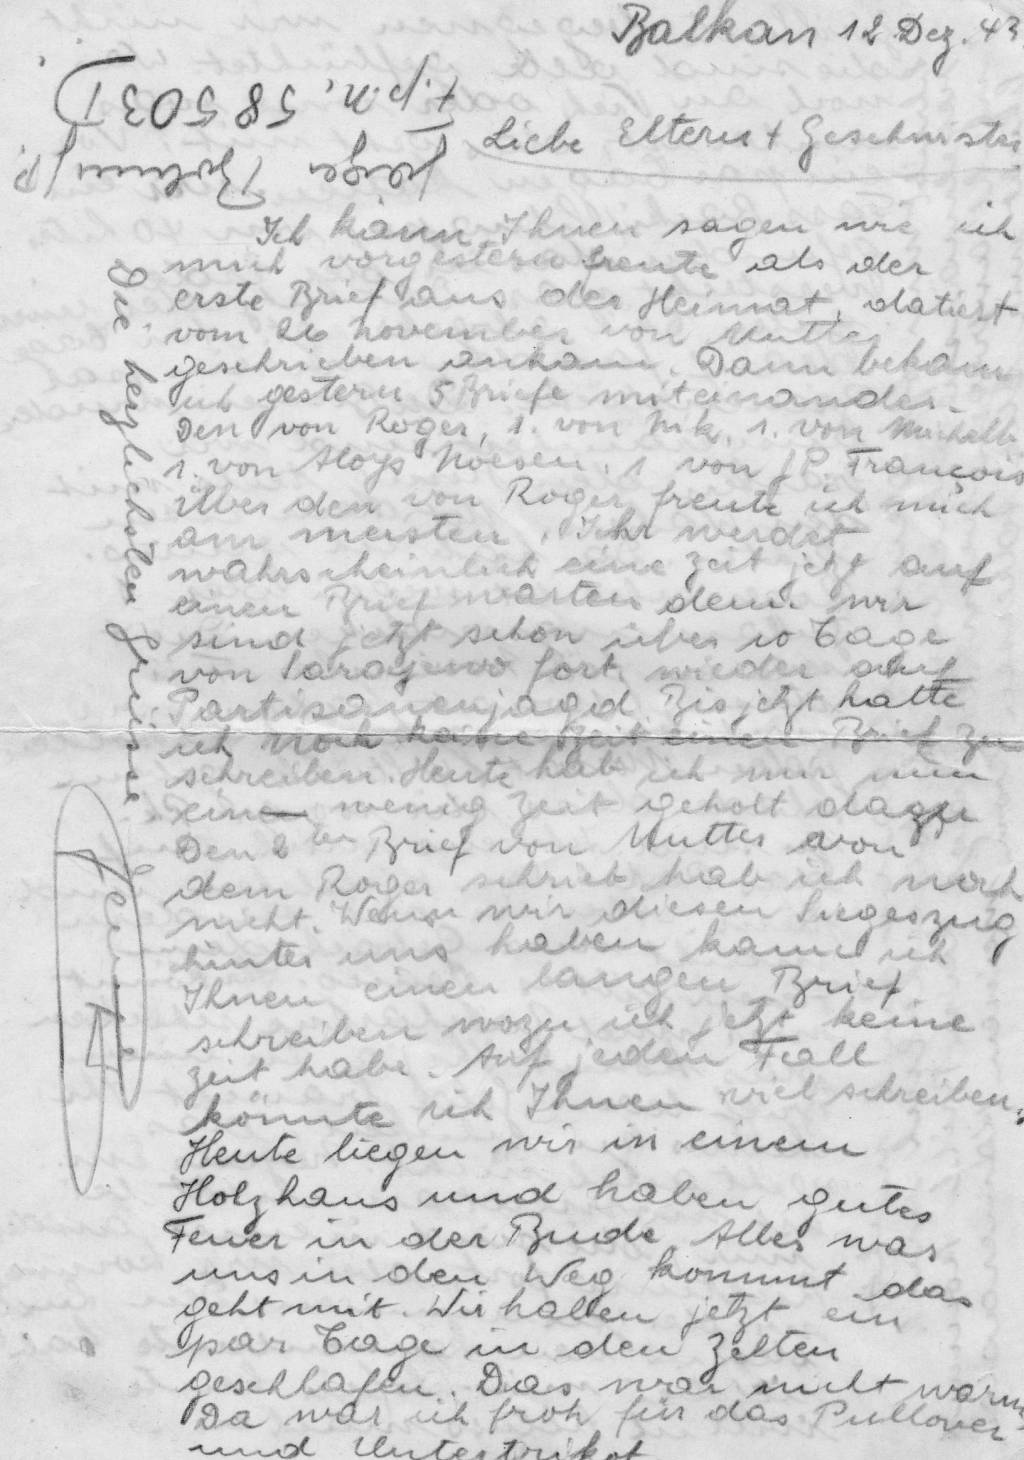 Balkan 12 Dez. 43
Jäger Bohner P.
F.p.N. 58503 D
Liebe Eltern + Geschwister
Ich kann Ihnen sagen wie ich
mich vorgestern freute als der
erste Brief aus der Heimat, datiert
vom 26 november von Mutter
geschrieben ankam. Dann bekam
ich gestern 5 Briefe miteinander.
Den von Roger, 1. von Nik, 1. von
1. von Aloys Noesen, 1 von J.P. François
Über den von Roger freute ich mich
am meisten. Ihr werdet
wahrscheinlich eine Zeit jetzt auf
einen Brief warten denn wir
sind jetzt schon über 10 Tage
von Sarajewo fort, wieder auf
Partisanenjagd. Bis jetzt hatte
ich noch keine Zeit einen Brief zu
schreiben. Heute hab ich mir nun
ein wenig Zeit geholt dazu
Den 2ten Brief von Mutter von
dem Roger schrieb hab ich noch
nicht. Wenn wir diesen Siegeszug
hinter uns haben kann ich
Ihnen einen langen Brief
schreiben wozu ich jetzt keine
zeit habe. Auf jeden Fall
könnte ich Ihnen viel schreiben.
Heute liegen wir in einem
Holzhaus und haben gutes
Feuer in der Bude. Alles was
uns in den Weg kommt das
geht mit. Wir haben jetzt ein
par Tage in den Zelten
geschlafen. Das war nicht warm
Da war ich froh für das Pullover
und Untertrikot
Die herzlichsten Grüsse